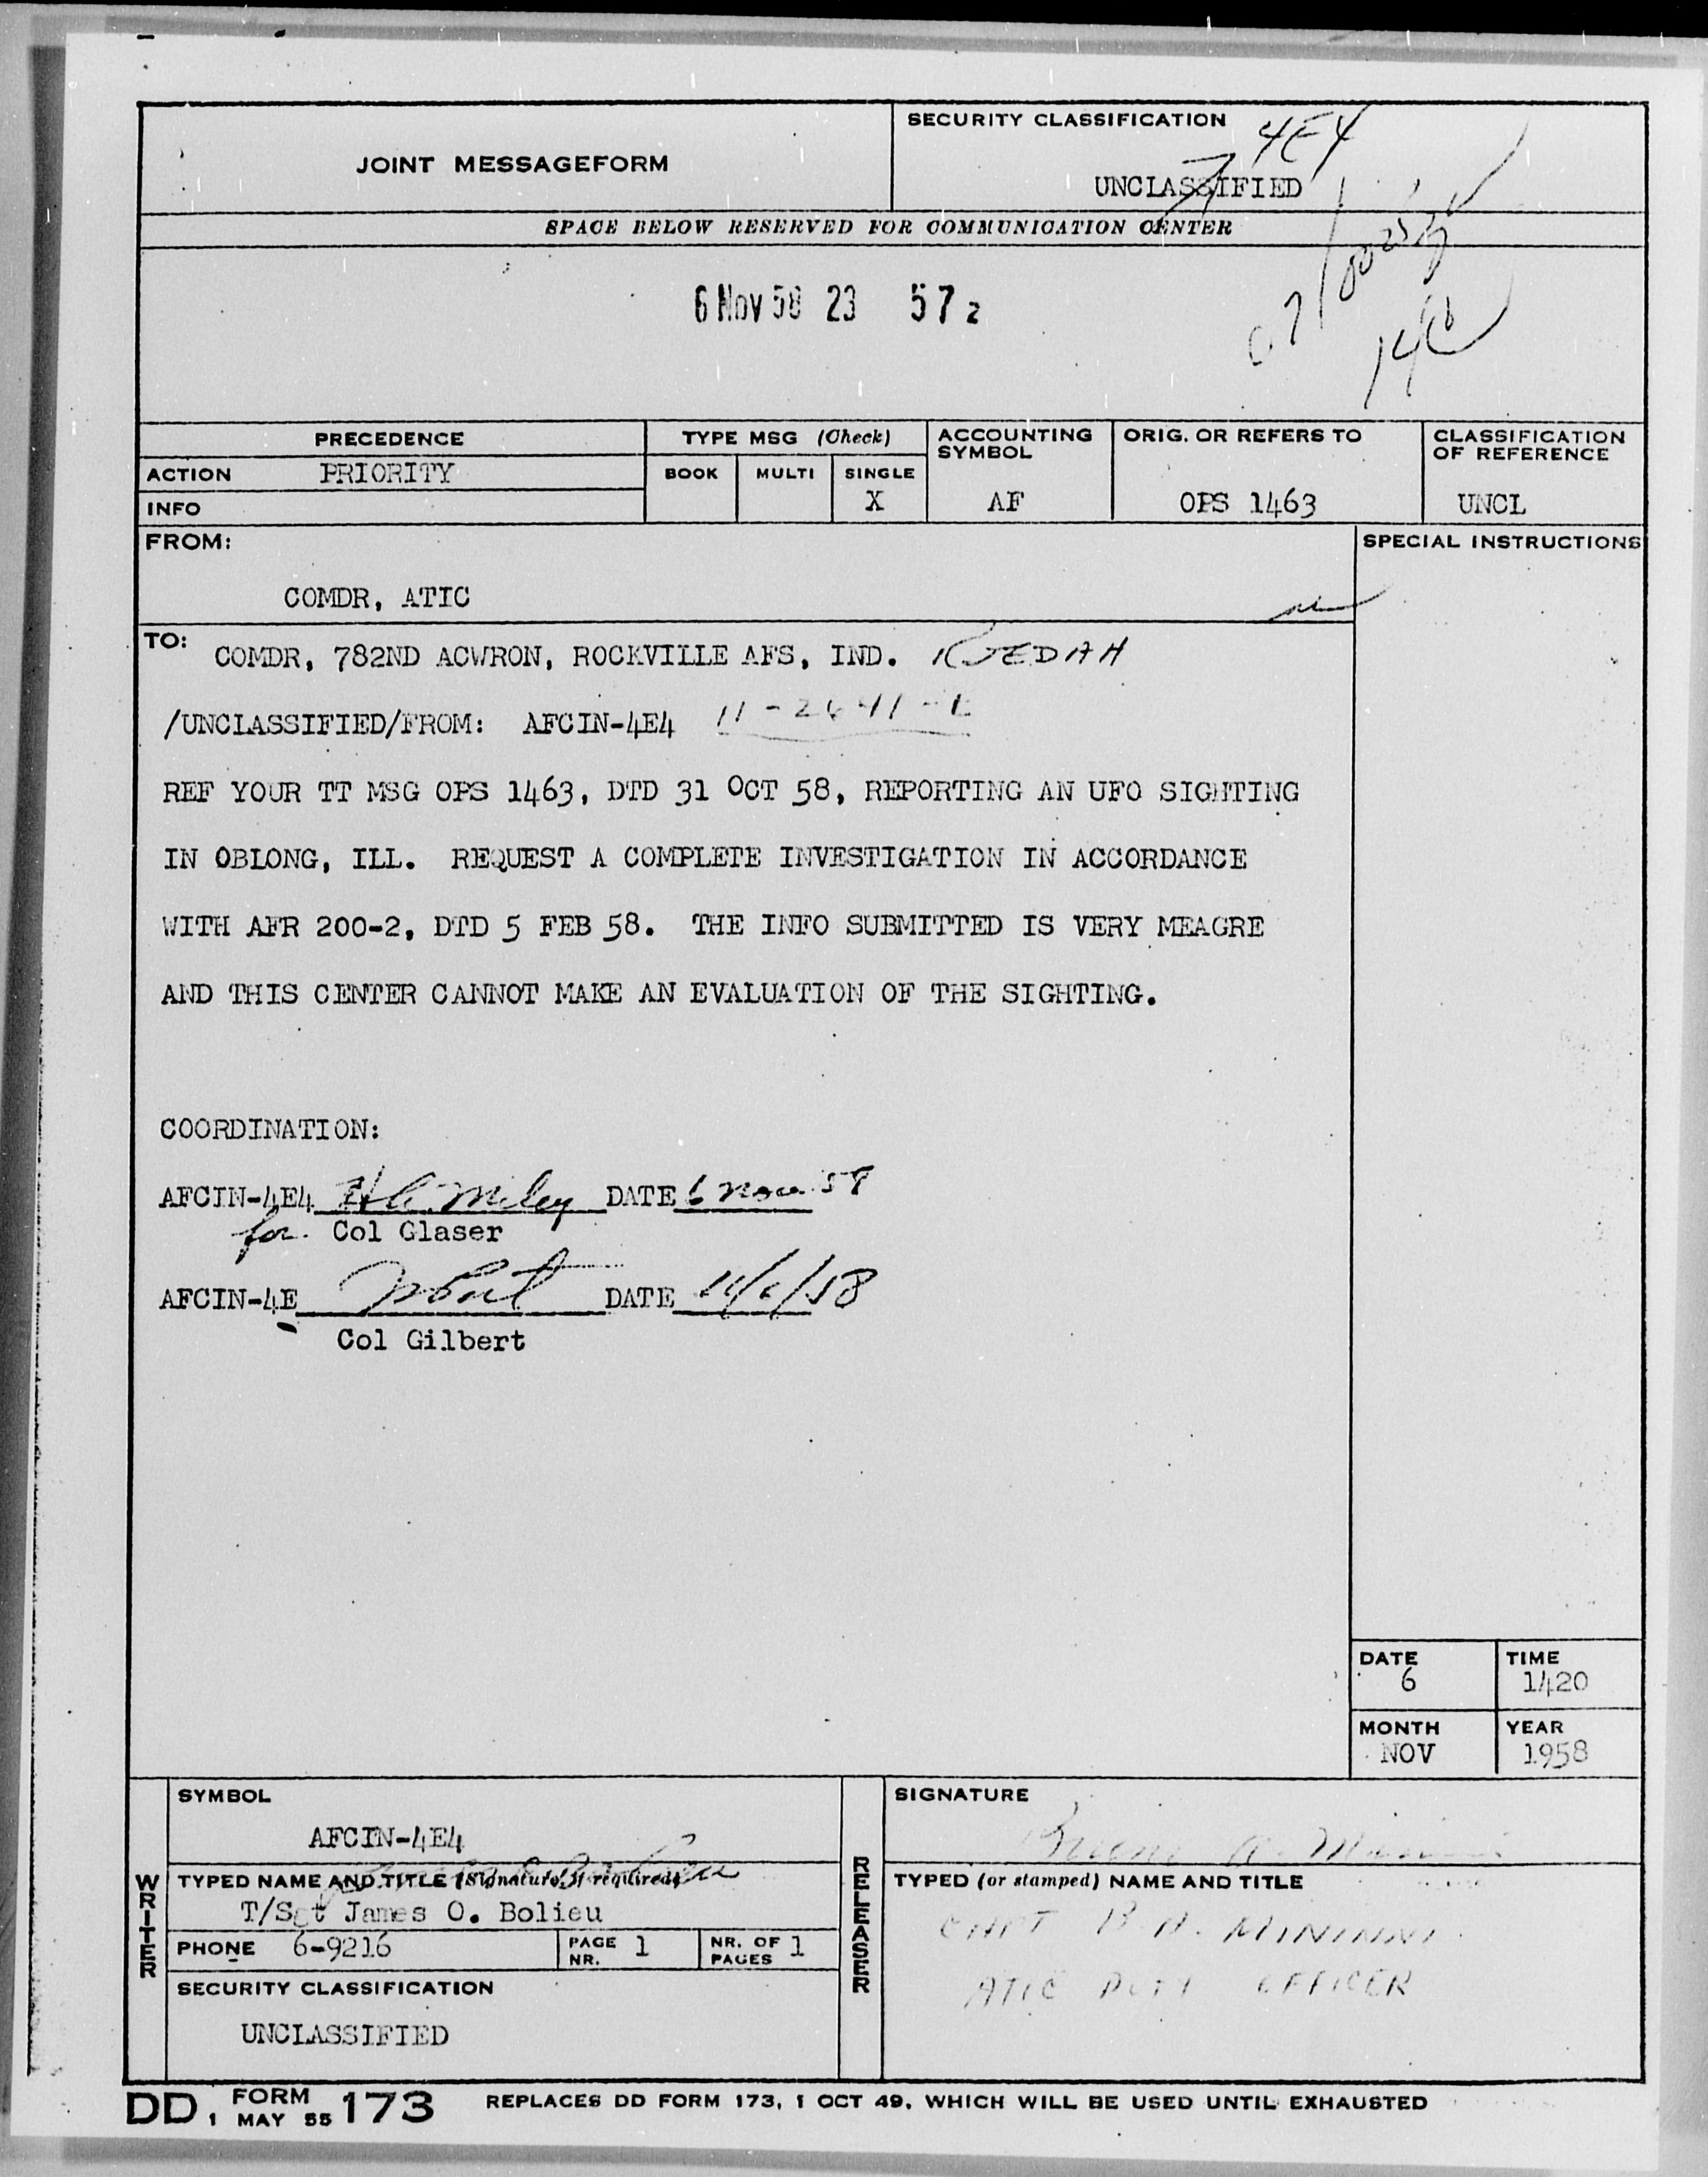 JOINT MESSAGEFORM
SECURITY CLASSIFICATION
4E4
UNCLASSIFIED
SPACE BELOW RESERVED FOR COMMUNICATION CENTER
6 NOV 58 23 57 Z
PRECEDENCE
TYPE MSG (Check)
ACCOUNTING SYMBOL
ORIG. OR REFERS TO
CLASSIFICATION OF REFERENCE
ACTION PRIORITY
BOOK MULTI SINGLE
INFO
X
AF
OPS 1463
UNCL
FROM:
SPECIAL INSTRUCTIONS
COMDR, ATIC
TO:
COMDR, 782ND ACWRON, ROCKVILLE AFS, IND. RJEDAH
/UNCLASSIFIED/FROM: AFCIN-4E4 11-2641-E
REF YOUR TT MSG OPS 1463, DTD 31 OCT 58, REPORTING AN UFO SIGHTING
IN OBLONG, ILL. REQUEST A COMPLETE INVESTIGATION IN ACCORDANCE
WITH AFR 200-2, DTD 5 FEB 58. THE INFO SUBMITTED IS VERY MEAGRE
AND THIS CENTER CANNOT MAKE AN EVALUATION OF THE SIGHTING.
COORDINATION:
AFCIN-4E4 DATE 6 Nov 58
for Col Glaser
AFCIN-4E DATE 11/6/58
Col Gilbert
DATE
6
TIME
1420
MONTH
NOV
YEAR
1958
WRITER
SYMBOL
AFCIN-4E4
TYPED NAME AND TITLE (Signature, if required)
T/Sgt James O. Bolieu
PHONE 6-9216
PAGE NR. 1
NR. OF PAGES 1
SECURITY CLASSIFICATION
UNCLASSIFIED
RELEASER
SIGNATURE
TYPED (or stamped) NAME AND TITLE
CAPT B A. MININNI
ATIC DUTY OFFICER
DD FORM 1 MAY 55 173
REPLACES DD FORM 173, 1 OCT 49, WHICH WILL BE USED UNTIL EXHAUSTED